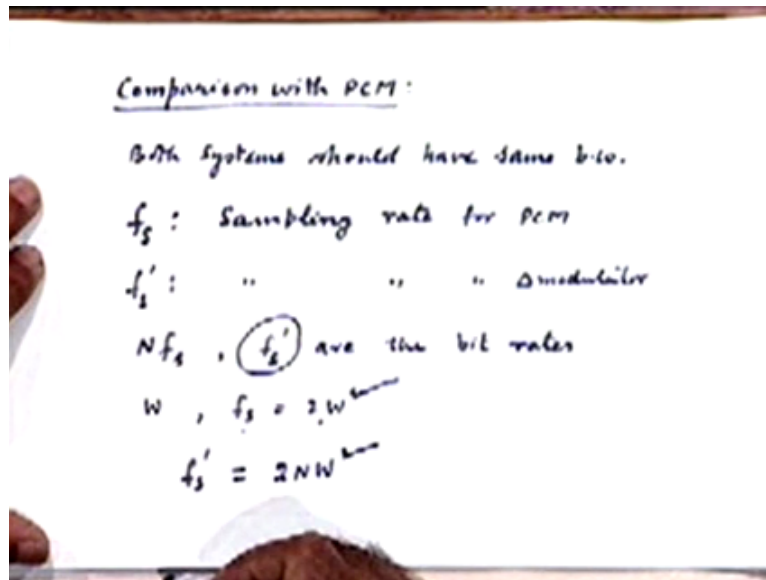 Comparison with PCM:
Both systems should have same b.w.
fs : Sampling rate for PCM
fs' : " " " Δ modulator
Nfs , fs' are the bit rates
W , fs = 2W
fs' = 2NW